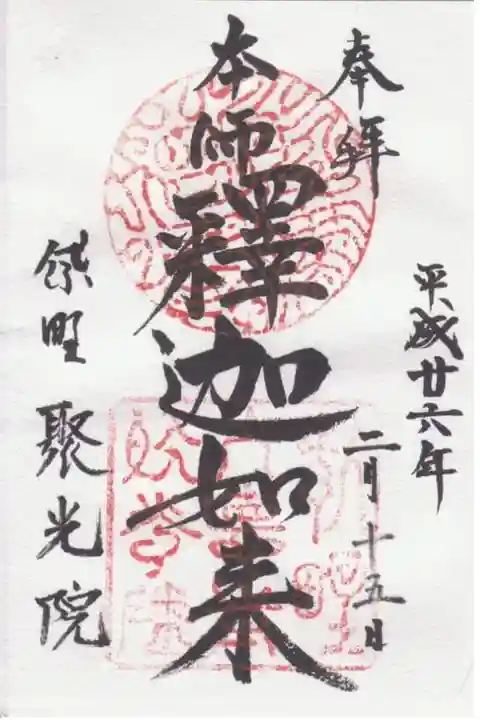 奉拝
平成廿六年
二月十五日
本師釋迦如来
紫野 聚光院